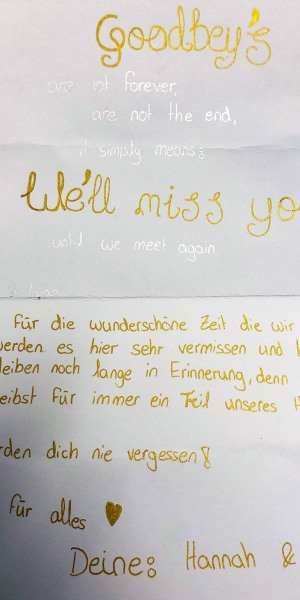 Goodbey's
are not forever,
are not the end,
it simply means:
We'll miss yo
until we meet again
Für die wunderschöne Zeit die wir
werden es hier sehr vermissen und
leiben noch lange in Erinnerung, denn
eibst für immer ein Teil unseres
rden dich nie vergessen!
für alles ♥
Deine: Hannah &